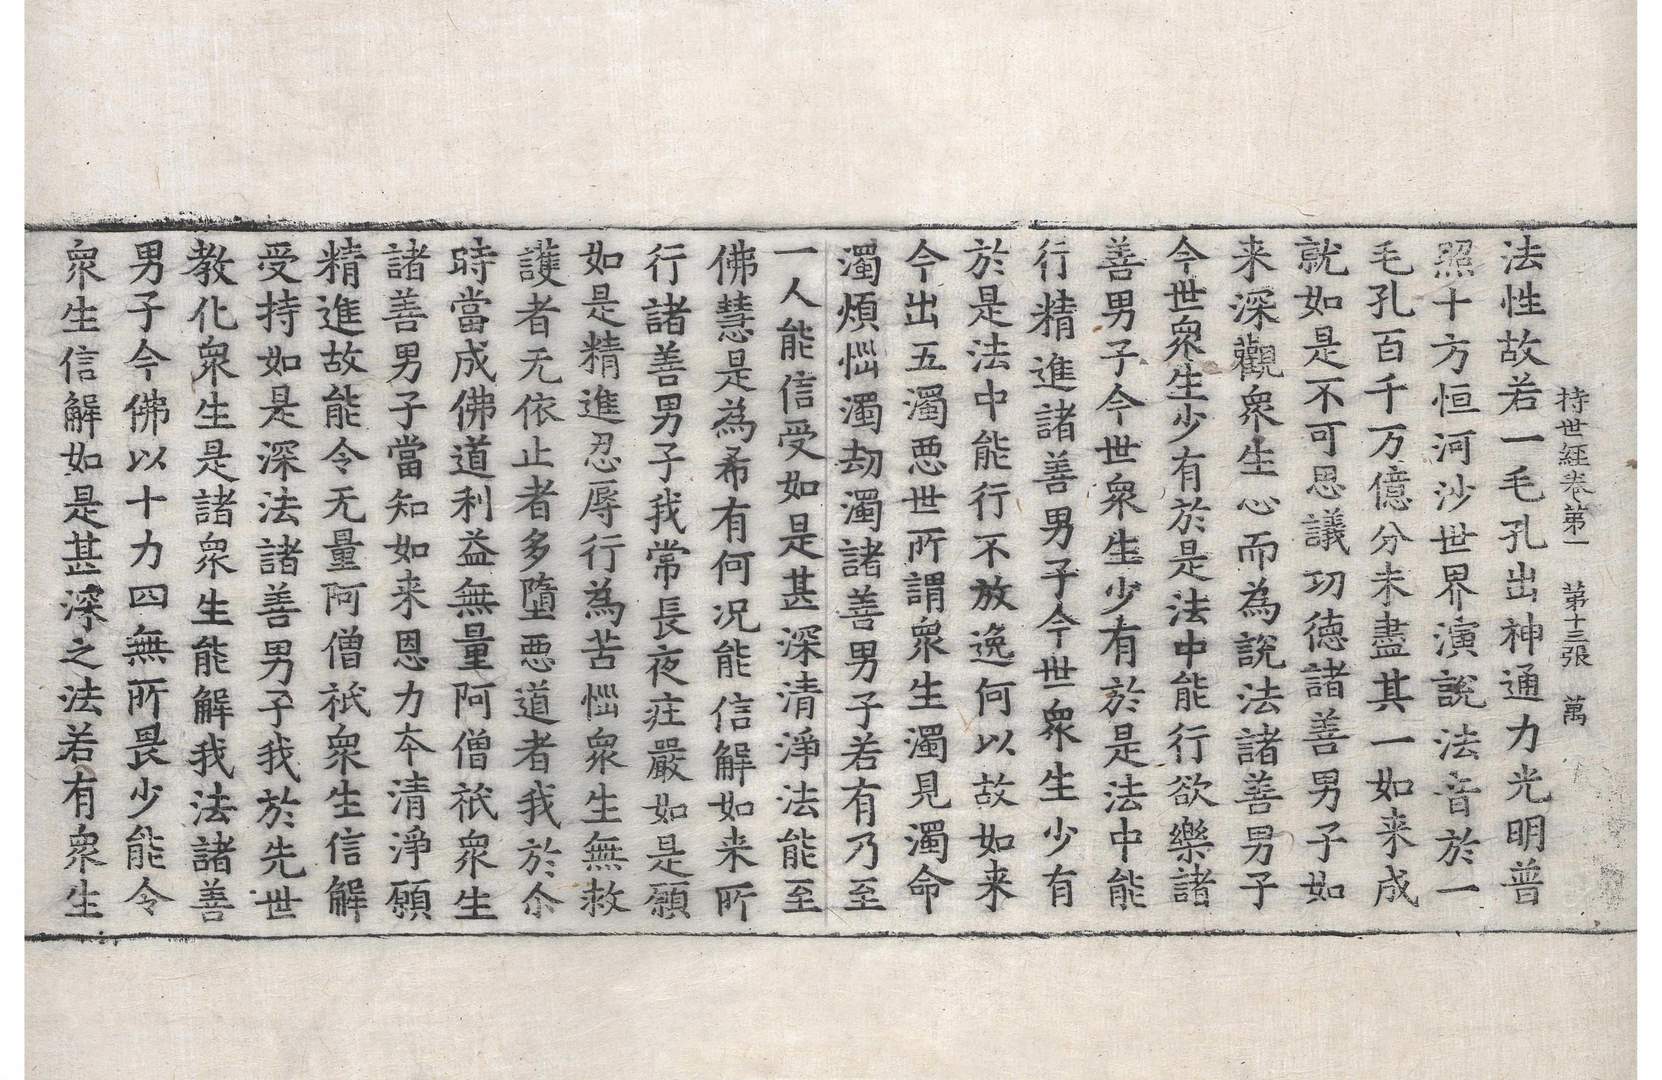 持世經卷第一 第十三張 萬
法性故若一毛孔出神通力光明普
照十方恒河沙世界演說法音於一
毛孔百千万億分未盡其一如来成
就如是不可思議功德諸善男子如
来深觀衆生心而為說法諸善男子
今世衆生少有於是法中能行欲樂諸
善男子今世衆生少有於是法中能
行精進諸善男子今世衆生少有
於是法中能行不放逸何以故如来
今出五濁惡世所謂衆生濁見濁命
濁煩惱濁劫濁諸善男子若有乃至
一人能信受如是甚深清淨法能至
佛慧是為希有何況能信解如来所
行諸善男子我常長夜莊嚴如是願
如是精進忍辱行為苦惱衆生無救
護者无依止者多墮惡道者我於尒
時當成佛道利益無量阿僧祇衆生
諸善男子當知如来恩力夲清淨願
精進故能令无量阿僧祇衆生信解
受持如是深法諸善男子我於先世
教化衆生是諸衆生能解我法諸善
男子今佛以十力四無所畏少能令
衆生信解如是甚深之法若有衆生